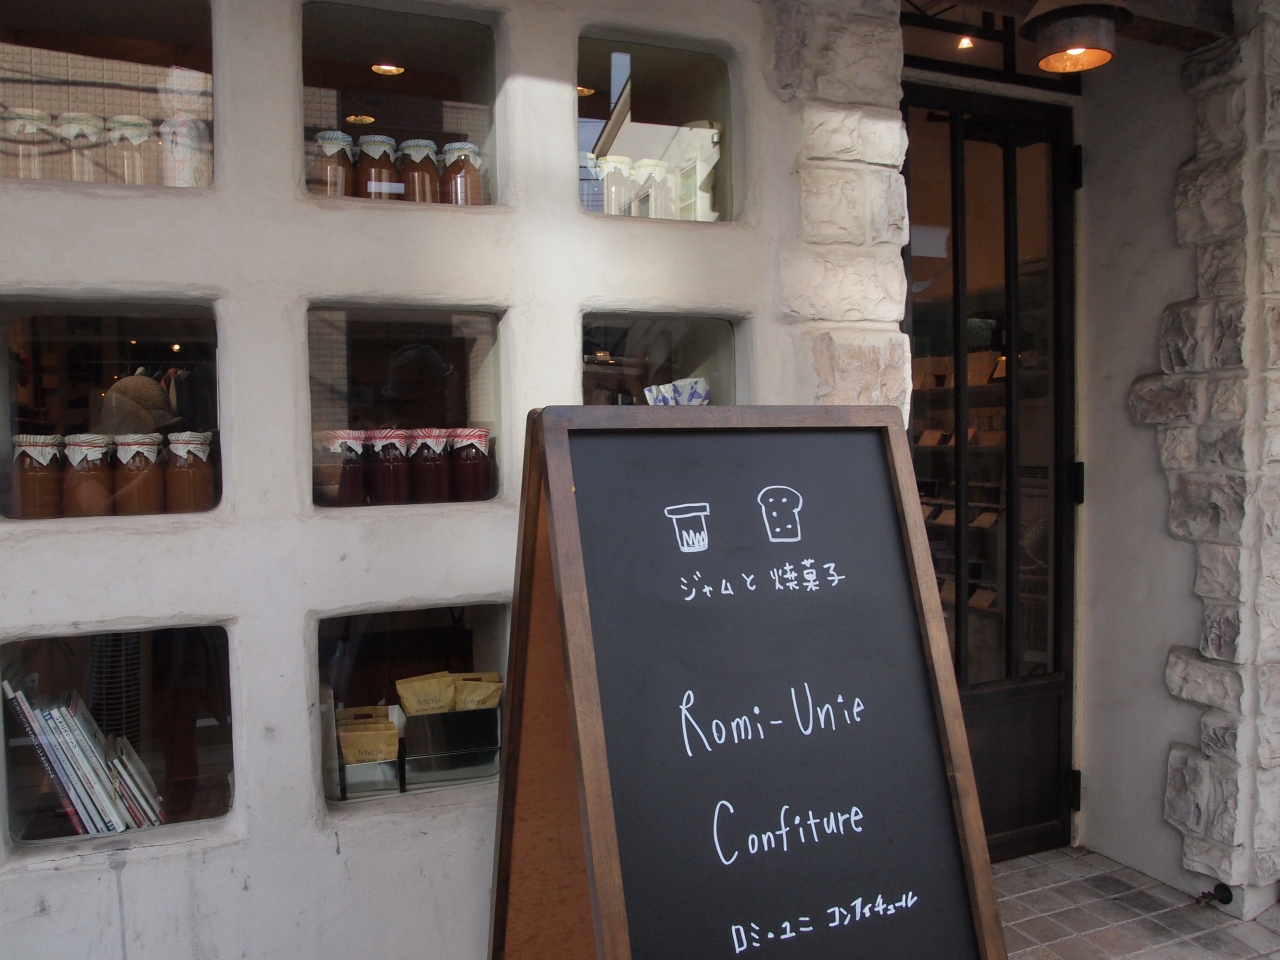 ジャムと焼菓子
Romi-Unie
Confiture
ロミ・ユニ コンフィチュール